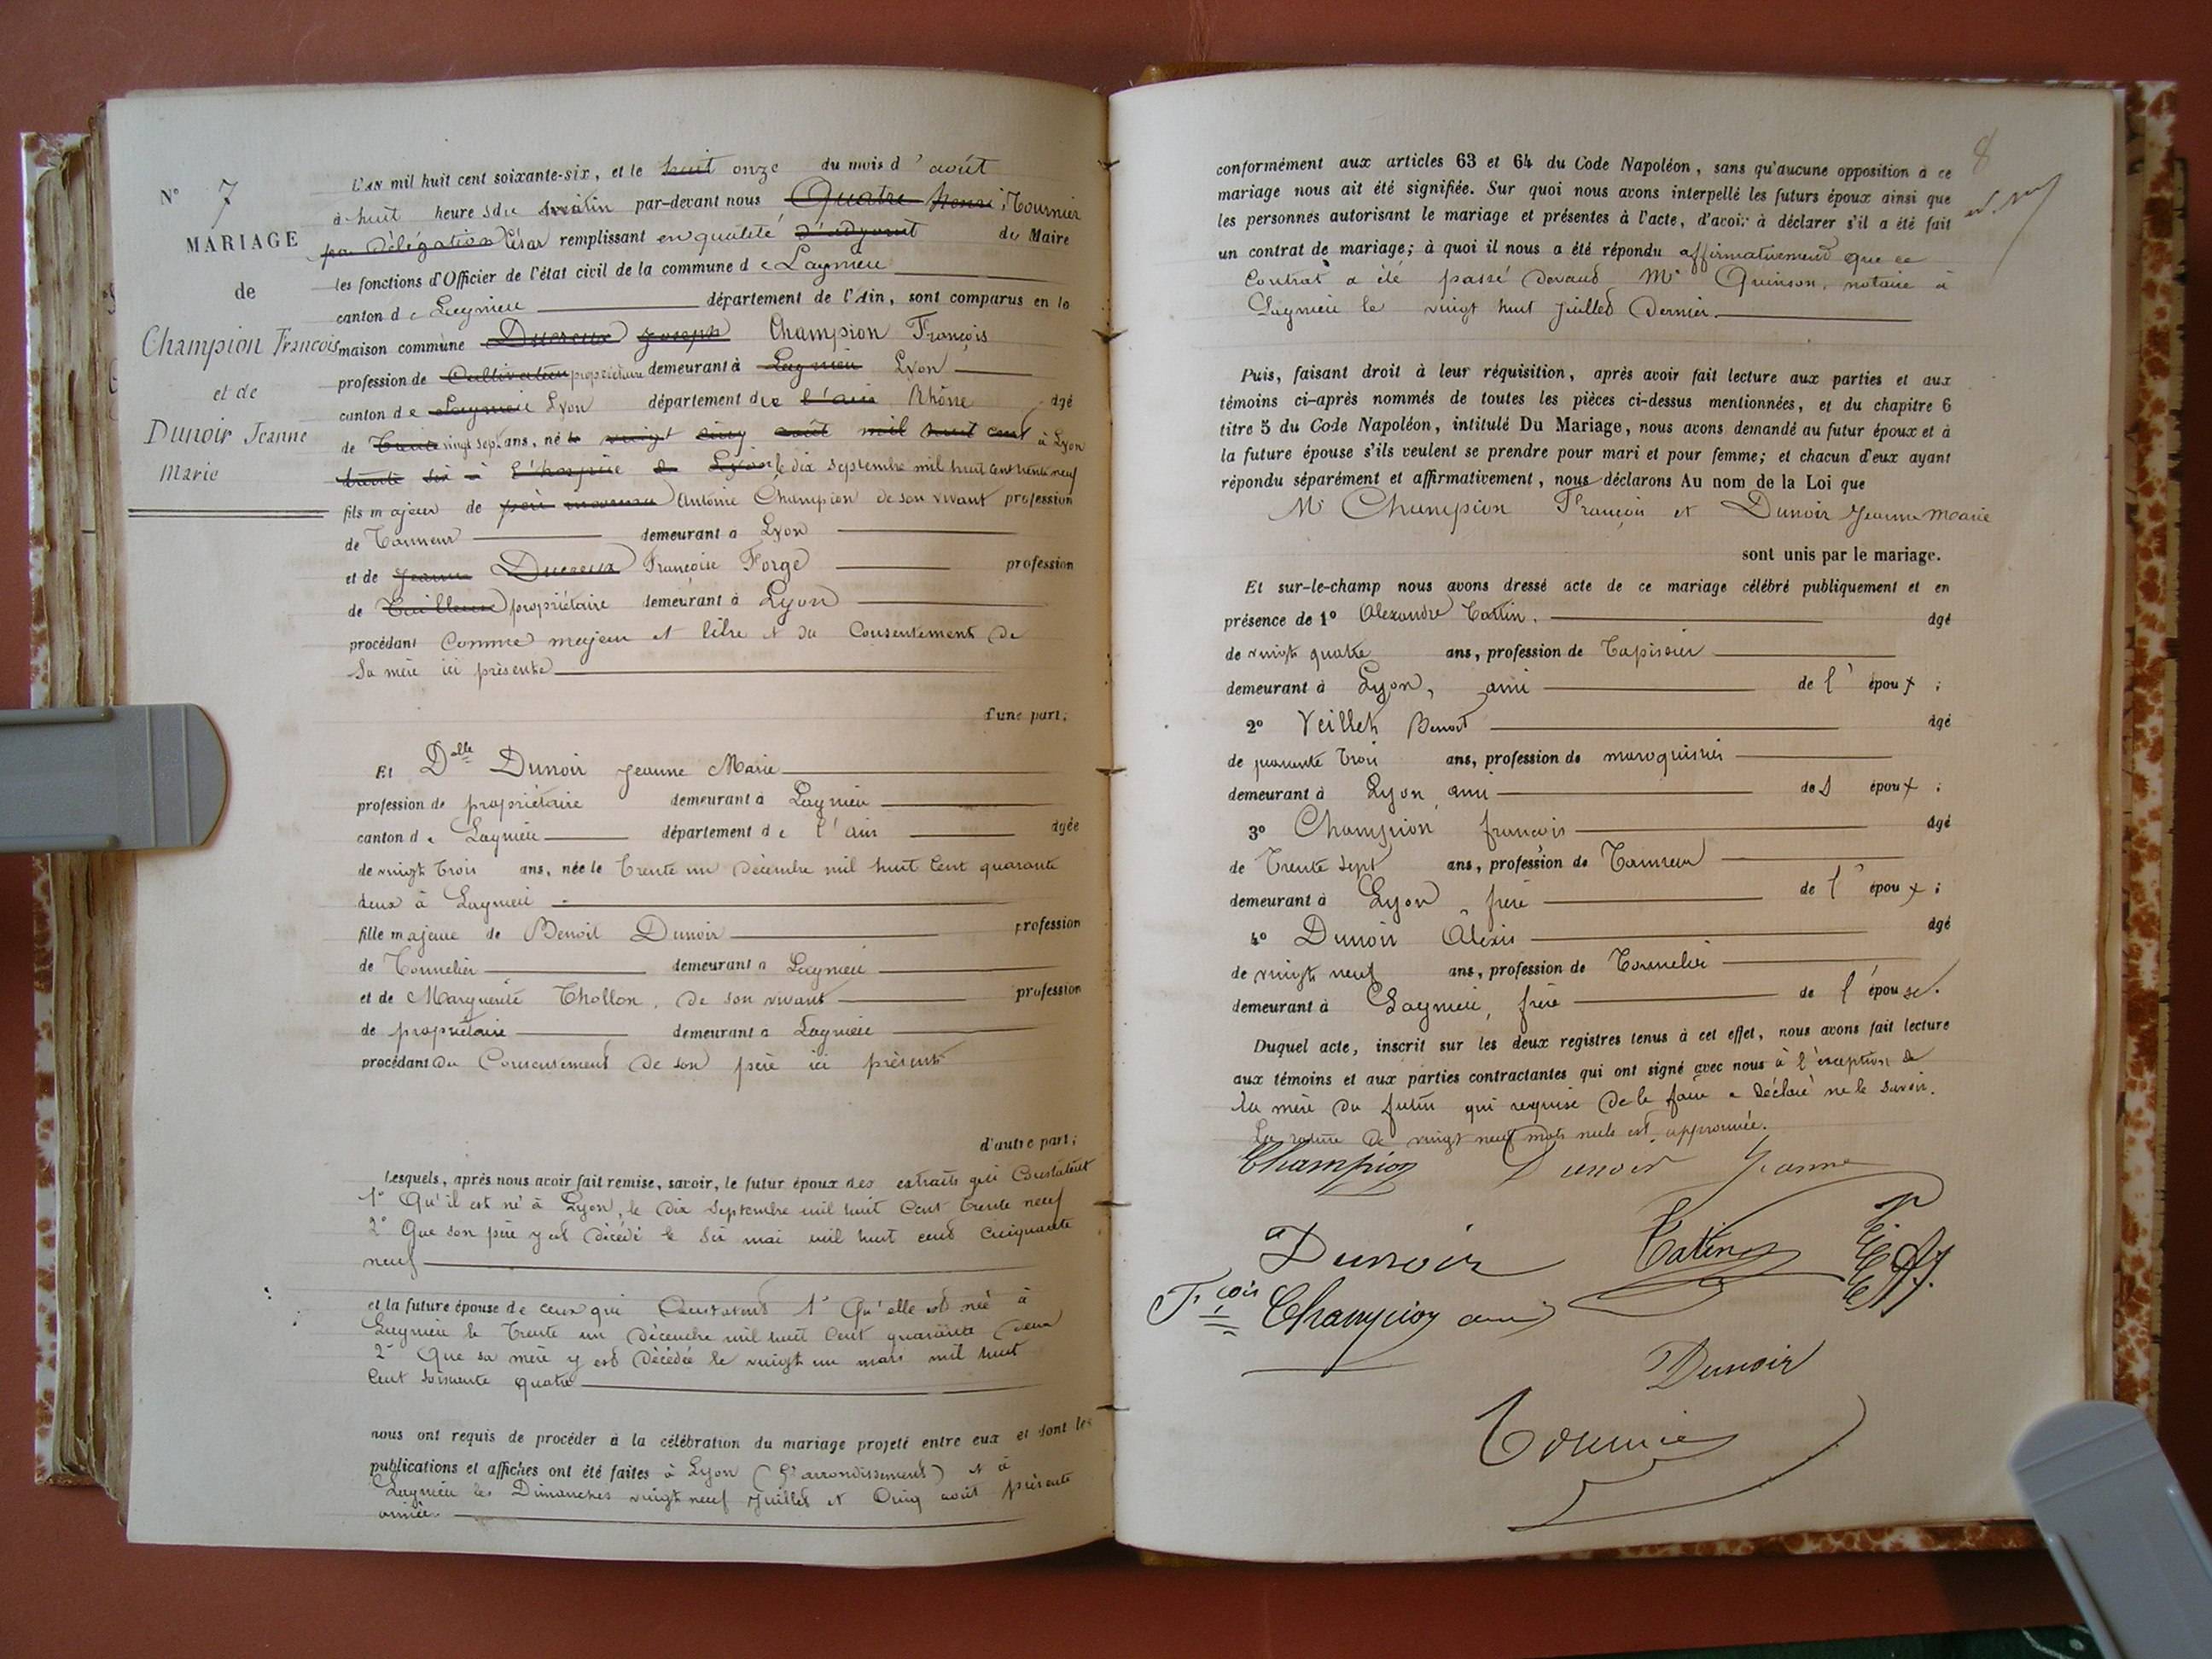 N° 7
MARIAGE
de
Champion François
et de
Dunoir Jeanne
Marie
L'AN mil huit cent soixante-six, et le huit onze du mois d'août
à huit heures du matin par-devant nous Quatre henri, Tournier
par Délégation César remplissant en qualité d'adjoint de Maire
les fonctions d'Officier de l'état civil de la commune de Lagnieu
canton de Lagnieu département de l'Ain, sont comparus en la
maison commune Ducreux Joseph Champion François
profession de Cultivateur propriétaire demeurant à Lagnieu Lyon
canton de Lagnieu Lyon département de l'ain Rhône âgé
de Trente vingt sept ans, né le vingt cinq août mil huit cent à Lyon
trente six à l'hospice de Lyon le dix septembre mil huit cent trente neuf
fils majeur de père inconnu Antoine Champion de son vivant profession
de Tanneur demeurant à Lyon
et de Jeanne Ducreux Françoise Forge profession
de Tailleuse propriétaire demeurant à Lyon
procédant comme majeur et libre et du Consentement de
Sa mère ici présente
d'une part;
Et Delle Dunoir Jeanne Marie
profession de propriétaire demeurant à Lagnieu
canton de Lagnieu département de l'ain âgée
de vingt trois ans, née le Trente un Décembre mil huit Cent quarante
deux à Lagnieu
fille majeure de Benoit Dunoir profession
de Tonnelier demeurant à Lagnieu
et de Marguerite Thollon, de son vivant profession
de propriétaire demeurant à Lagnieu
procédant du Consentement de son père ici présent
d'autre part;
Lesquels, après nous avoir fait remise, savoir, le futur époux des extraits qui Constatent
1° Qu'il est né à Lyon, le Dix Septembre mil huit Cent trente neuf
2° Que son père y est décédé le Six mai mil huit cent Cinquante
neuf
et la future épouse de ceux qui Constatent 1° Qu'elle est née à
Lagnieu le Trente un Décembre mil huit Cent quarante deux
2° Que sa mère y est Décédée le vingt un mars mil huit
Cent soixante quatre
nous ont requis de procéder à la célébration du mariage projeté entre eux et dont les
publications et affiches ont été faites à Lyon ( arrondissement) et à
Lagnieu les Dimanches vingt neuf Juillet et Cinq août présente
année.
8
conformément aux articles 63 et 64 du Code Napoléon, sans qu'aucune opposition à ce
mariage nous ait été signifiée. Sur quoi nous avons interpellé les futurs époux ainsi que
les personnes autorisant le mariage et présentes à l'acte, d'avoir à déclarer s'il a été fait
un contrat de mariage; à quoi il nous a été répondu affirmativement que ce
Contrat a été passé devant Me Quinson, notaire à
Lagnieu le vingt huit Juillet Dernier.
Puis, faisant droit à leur réquisition, après avoir fait lecture aux parties et aux
témoins ci-après nommés de toutes les pièces ci-dessus mentionnées, et du chapitre 6
titre 5 du Code Napoléon, intitulé Du Mariage, nous avons demandé au futur époux et à
la future épouse s'ils veulent se prendre pour mari et pour femme; et chacun d'eux ayant
répondu séparément et affirmativement, nous déclarons Au nom de la Loi que
Mr Champion François et Dunoir Jeanne Marie
sont unis par le mariage.
Et sur-le-champ nous avons dressé acte de ce mariage célébré publiquement et en
présence de 1° Alexandre Tattin. âgé
de vingt quatre ans, profession de Tapissier
demeurant à Lyon, ami de l'époux;
2° Veillet Benoit âgé
de quarante Trois ans, profession de maroquinier
demeurant à Lyon, ami de l'époux;
3° Champion françois âgé
de Trente sept ans, profession de Tanneur
demeurant à Lyon, frère de l'époux;
4° Dunoir Alexis âgé
de vingt neuf ans, profession de Tonnelier
demeurant à Lagnieu, frère de l'épouse.
Duquel acte, inscrit sur les deux registres tenus à cet effet, nous avons fait lecture
aux témoins et aux parties contractantes qui ont signé avec nous à l'exception de
la mère du futur qui requise de le faire a Déclaré ne le savoir.
La rature de vingt neuf mots nuls est approuvée.
Champion Dunoir Jeanne
a Dunoir Tatin
F. çois Champion
Dunoir
Tournier